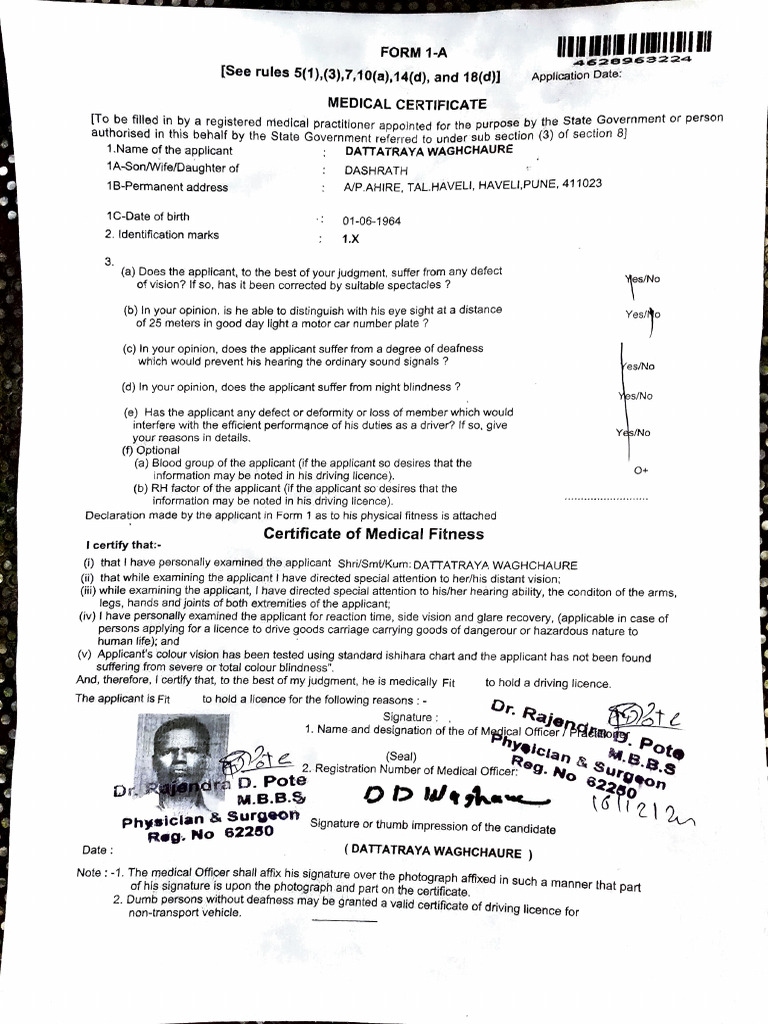 FORM 1-A
4628963224
[See rules 5(1),(3),7,10(a),14(d), and 18(d)]
Application Date:
MEDICAL CERTIFICATE
[To be filled in by a registered medical practitioner appointed for the purpose by the State Government or person
authorised in this behalf by the State Government referred to under sub section (3) of section 8]
1.Name of the applicant : DATTATRAYA WAGHCHAURE
1A-Son/Wife/Daughter of : DASHRATH
1B-Permanent address : A/P.AHIRE, TAL.HAVELI, HAVELI,PUNE, 411023
1C-Date of birth : 01-06-1964
2. Identification marks : 1.X
3.
(a) Does the applicant, to the best of your judgment, suffer from any defect
of vision? If so, has it been corrected by suitable spectacles ? Yes/No
(b) In your opinion, is he able to distinguish with his eye sight at a distance
of 25 meters in good day light a motor car number plate ? Yes/No
(c) In your opinion, does the applicant suffer from a degree of deafness
which would prevent his hearing the ordinary sound signals ? Yes/No
(d) In your opinion, does the applicant suffer from night blindness ? Yes/No
(e) Has the applicant any defect or deformity or loss of member which would
interfere with the efficient performance of his duties as a driver? If so, give
your reasons in details. Yes/No
(f) Optional
(a) Blood group of the applicant (if the applicant so desires that the
information may be noted in his driving licence). O+
(b) RH factor of the applicant (if the applicant so desires that the
information may be noted in his driving licence). ..........................
Declaration made by the applicant in Form 1 as to his physical fitness is attached
Certificate of Medical Fitness
I certify that:-
(i) that I have personally examined the applicant Shri/Smt/Kum: DATTATRAYA WAGHCHAURE
(ii) that while examining the applicant I have directed special attention to her/his distant vision;
(iii) while examining the applicant, I have directed special attention to his/her hearing ability, the conditon of the arms,
legs, hands and joints of both extremities of the applicant;
(iv) I have personally examined the applicant for reaction time, side vision and glare recovery, (applicable in case of
persons applying for a licence to drive goods carriage carrying goods of dangerour or hazardous nature to
human life); and
(v) Applicant's colour vision has been tested using standard ishihara chart and the applicant has not been found
suffering from severe or total colour blindness".
And, therefore, I certify that, to the best of my judgment, he is medically Fit to hold a driving licence.
The applicant is Fit to hold a licence for the following reasons : -
Signature :
1. Name and designation of the of Medical Officer / Practitioner
(Seal)
2. Registration Number of Medical Officer:
Dr. Rajendra D. Pote
M.B.B.S
Physician & Surgeon
Reg. No 62250
Dr. Rajendra D. Pote
M.B.B.S
Physician & Surgeon
Reg. No 62250
Signature or thumb impression of the candidate
Date :
( DATTATRAYA WAGHCHAURE )
Note : -1. The medical Officer shall affix his signature over the photograph affixed in such a manner that part
of his signature is upon the photograph and part on the certificate.
2. Dumb persons without deafness may be granted a valid certificate of driving licence for
non-transport vehicle.